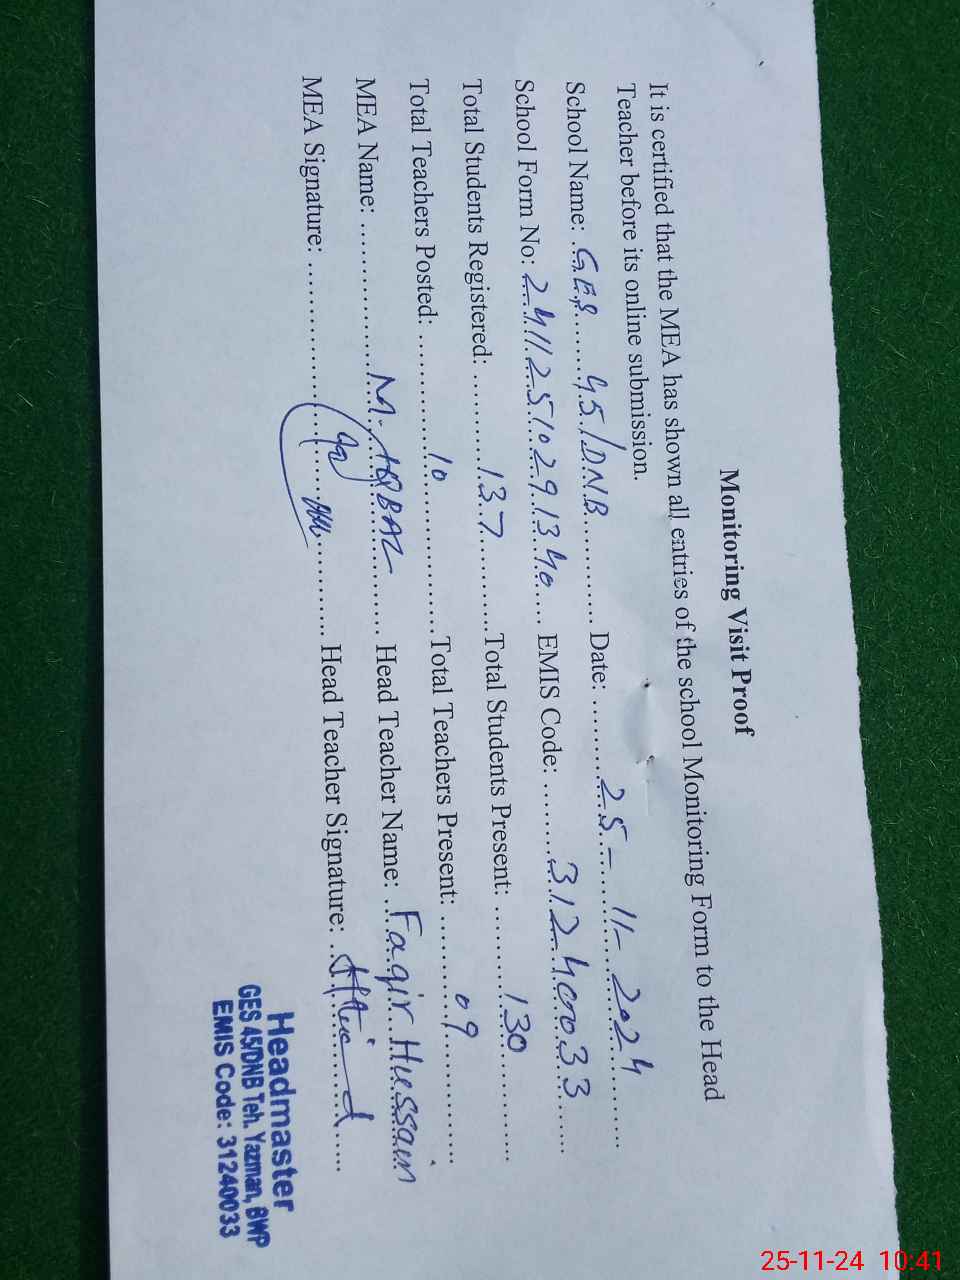 Monitoring Visit Proof
It is certified that the MEA has shown all entries of the school Monitoring Form to the Head
Teacher before its online submission.
School Name: GES 45/DNB Date: 25-11-2024
School Form No: 24112510291340 EMIS Code: 31240033
Total Students Registered: 137 Total Students Present: 130
Total Teachers Posted: 10 Total Teachers Present: 09
MEA Name: M. IQBAL Head Teacher Name: Faqir Hussain
MEA Signature: Head Teacher Signature:
Headmaster
GES 45/DNB Teh. Yazman, BWP
EMIS Code: 31240033
25-11-24 10:41